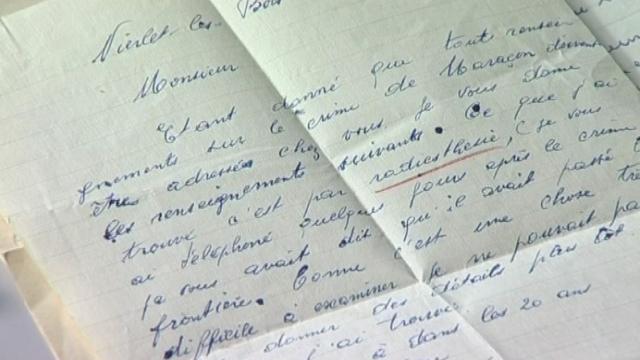 Vierlet-les-Bois
Monsieur
Etant donné que tout rensei
gnements sur le crime de Maracon doivent
êtres adressés chez vous. Je vous donne
les renseignements suivants. Ce que j'ai
trouvé c'est par radiesthésie, (je vous
ai téléphoné quelques jours après le crime
je vous avait dit qu'il avait passé
frontière. Comme c'est une chose trè
difficile à examiner je ne pouvait pa
donner des détails plus tôt.
j'ai trouvé
à dans les 20 ans